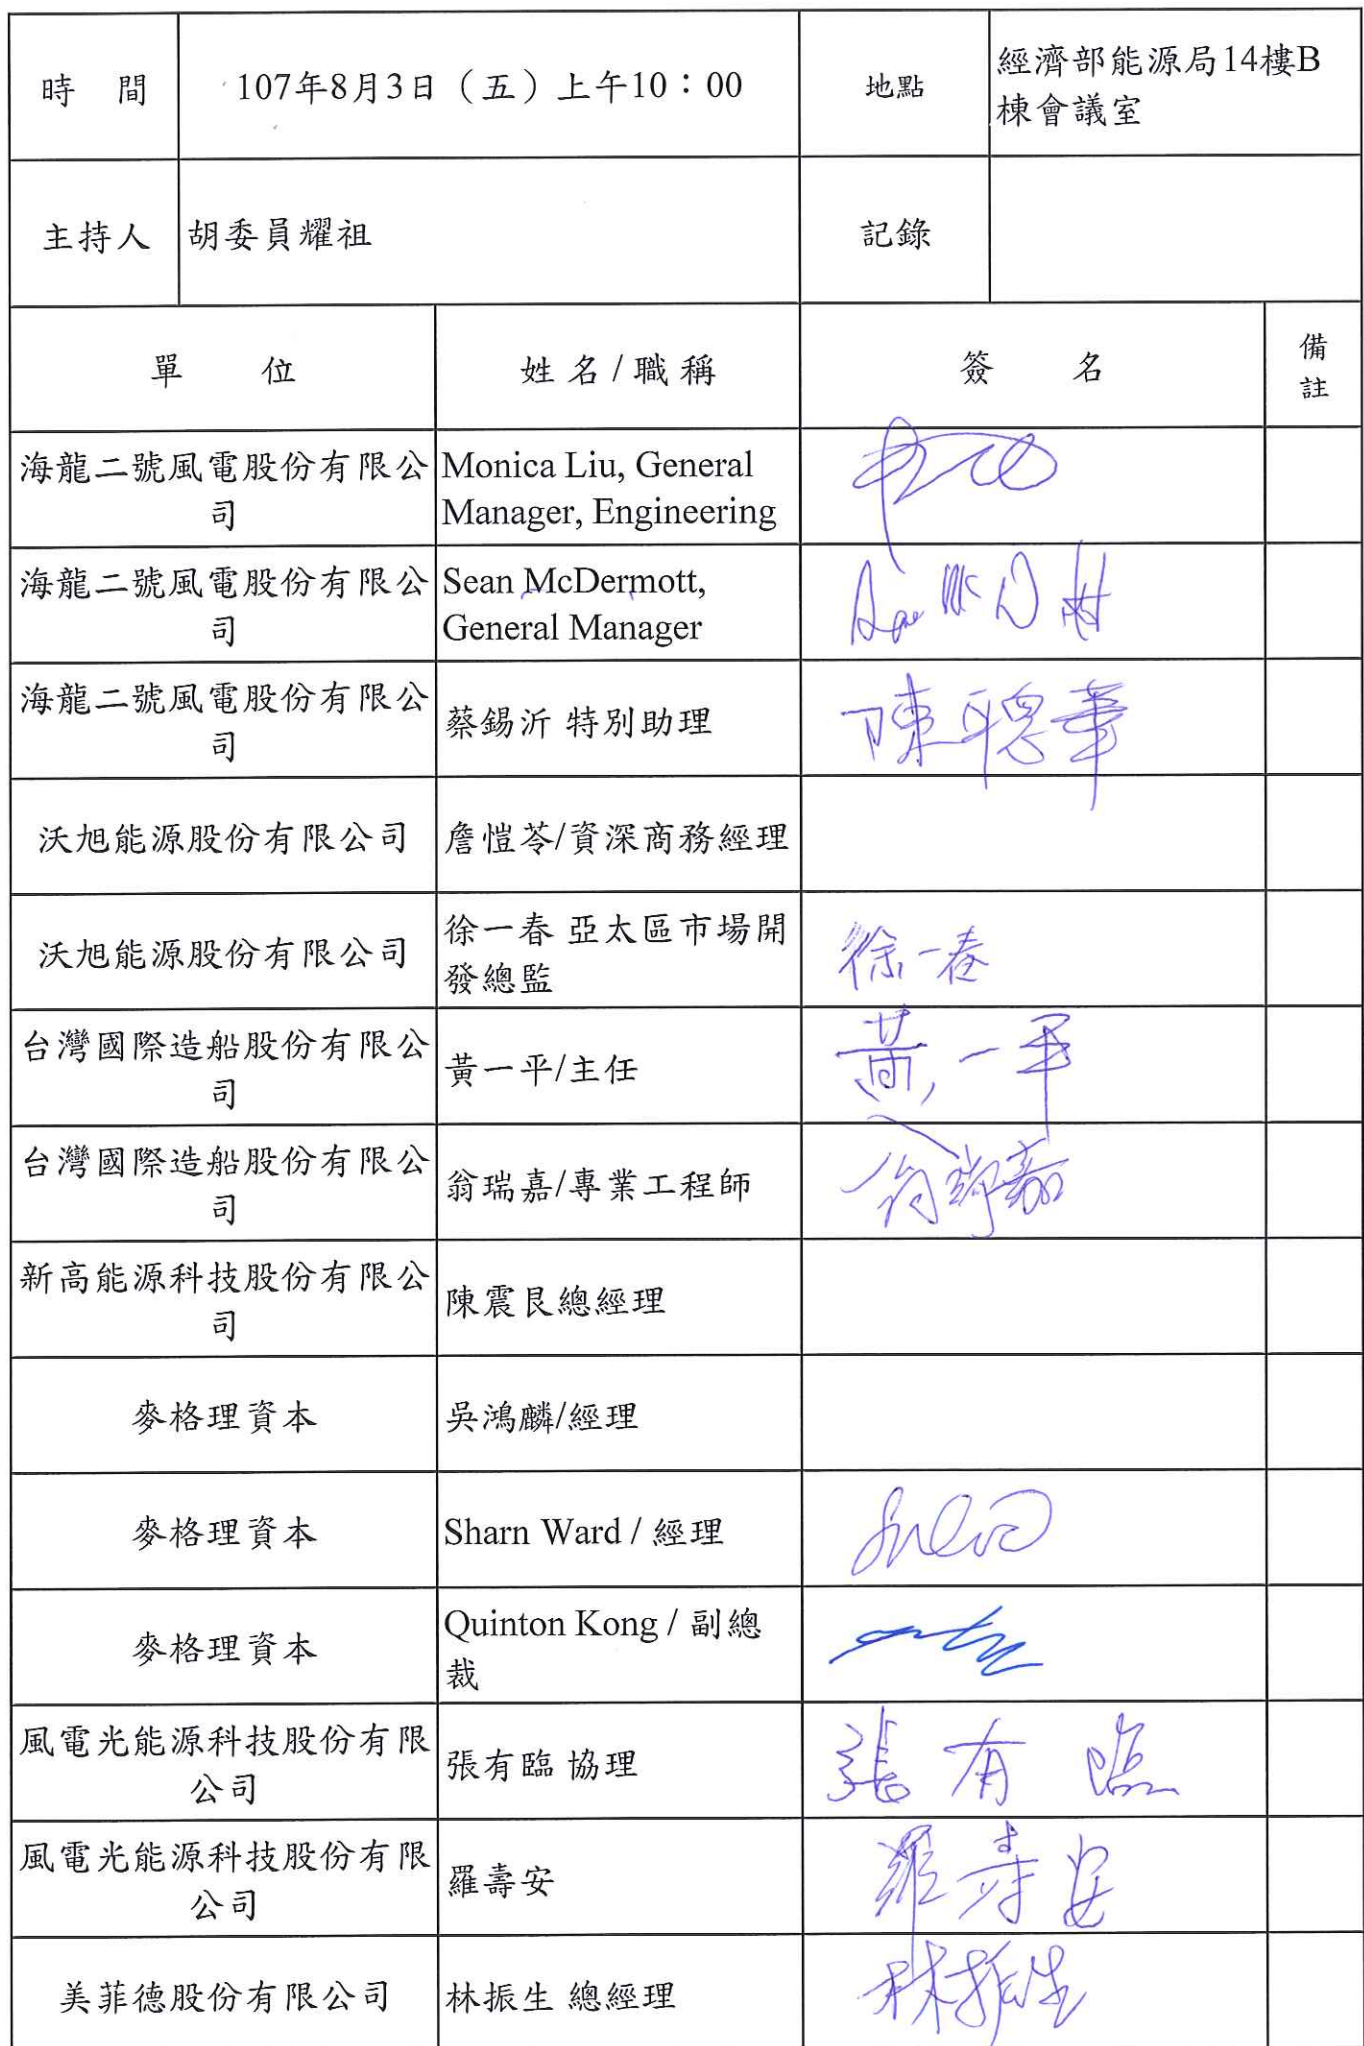 時 間 107年8月3日（五）上午10：00 地點 經濟部能源局14樓B
棟會議室
主持人 胡委員耀祖 記錄
單 位 姓 名 / 職 稱 簽 名 備
註
海龍二號風電股份有限公
司
Monica Liu, General
Manager, Engineering
海龍二號風電股份有限公
司
Sean McDermott,
General Manager
海龍二號風電股份有限公
司
蔡錫沂 特別助理
陳聰華
沃旭能源股份有限公司
詹愷苓/資深商務經理
沃旭能源股份有限公司
徐一春 亞太區市場開
發總監
徐一春
台灣國際造船股份有限公
司
黃一平/主任
黃一平
台灣國際造船股份有限公
司
翁瑞嘉/專業工程師
翁瑞嘉
新高能源科技股份有限公
司
陳震艮總經理
麥格理資本
吳鴻麟/經理
麥格理資本
Sharn Ward / 經理
麥格理資本
Quinton Kong / 副總
裁
風電光能源科技股份有限
公司
張有臨 協理
張有臨
風電光能源科技股份有限
公司
羅壽安
羅壽安
美菲德股份有限公司
林振生 總經理
林振生